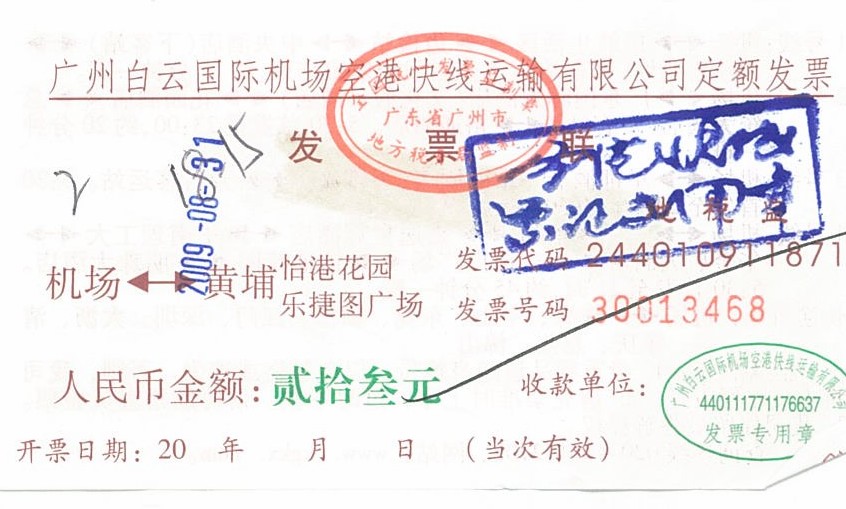 广州白云国际机场空港快线运输有限公司定额发票
发 票 联
广东省广州市
2009-08-31
地 税 监
发票代码 244010911871
机场 ←→ 黄埔 怡港花园
乐捷图广场
发票号码 30013468
人民币金额:贰拾叁元
收款单位:
广州白云国际机场空港快线运输有限公司
440111771176637
发票专用章
开票日期: 20 年 月 日 (当次有效)